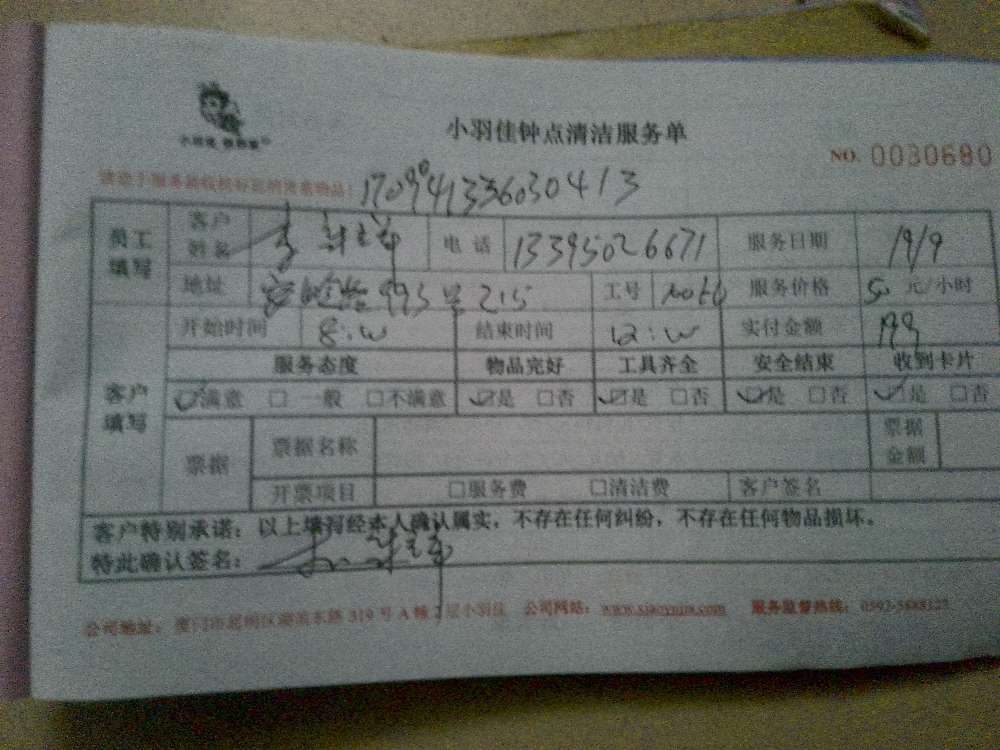 小羽佳钟点清洁服务单
NO. 0030680
1709041336030413
员工填写 客户姓名 电话 13395026671 服务日期 19/9
地址 993号215 工号 服务价格 50 元/小时
开始时间 8:00 结束时间 12:00 实付金额 199
客户填写 服务态度 物品完好 工具齐全 安全结束 收到卡片
☑满意 □一般 □不满意 ☑是 □否 ☑是 □否 ☑是 □否 ☑是 □否
票据 票据名称 票据金额
开票项目 □服务费 □清洁费 客户签名
客户特别承诺：以上填写经本人确认属实，不存在任何纠纷，不存在任何物品损坏。
特此确认签名：
公司地址：厦门市思明区湖滨东路 319 号 A 幢 2 层小羽佳 公司网站：www.xiaoyujia.com 服务监督热线：